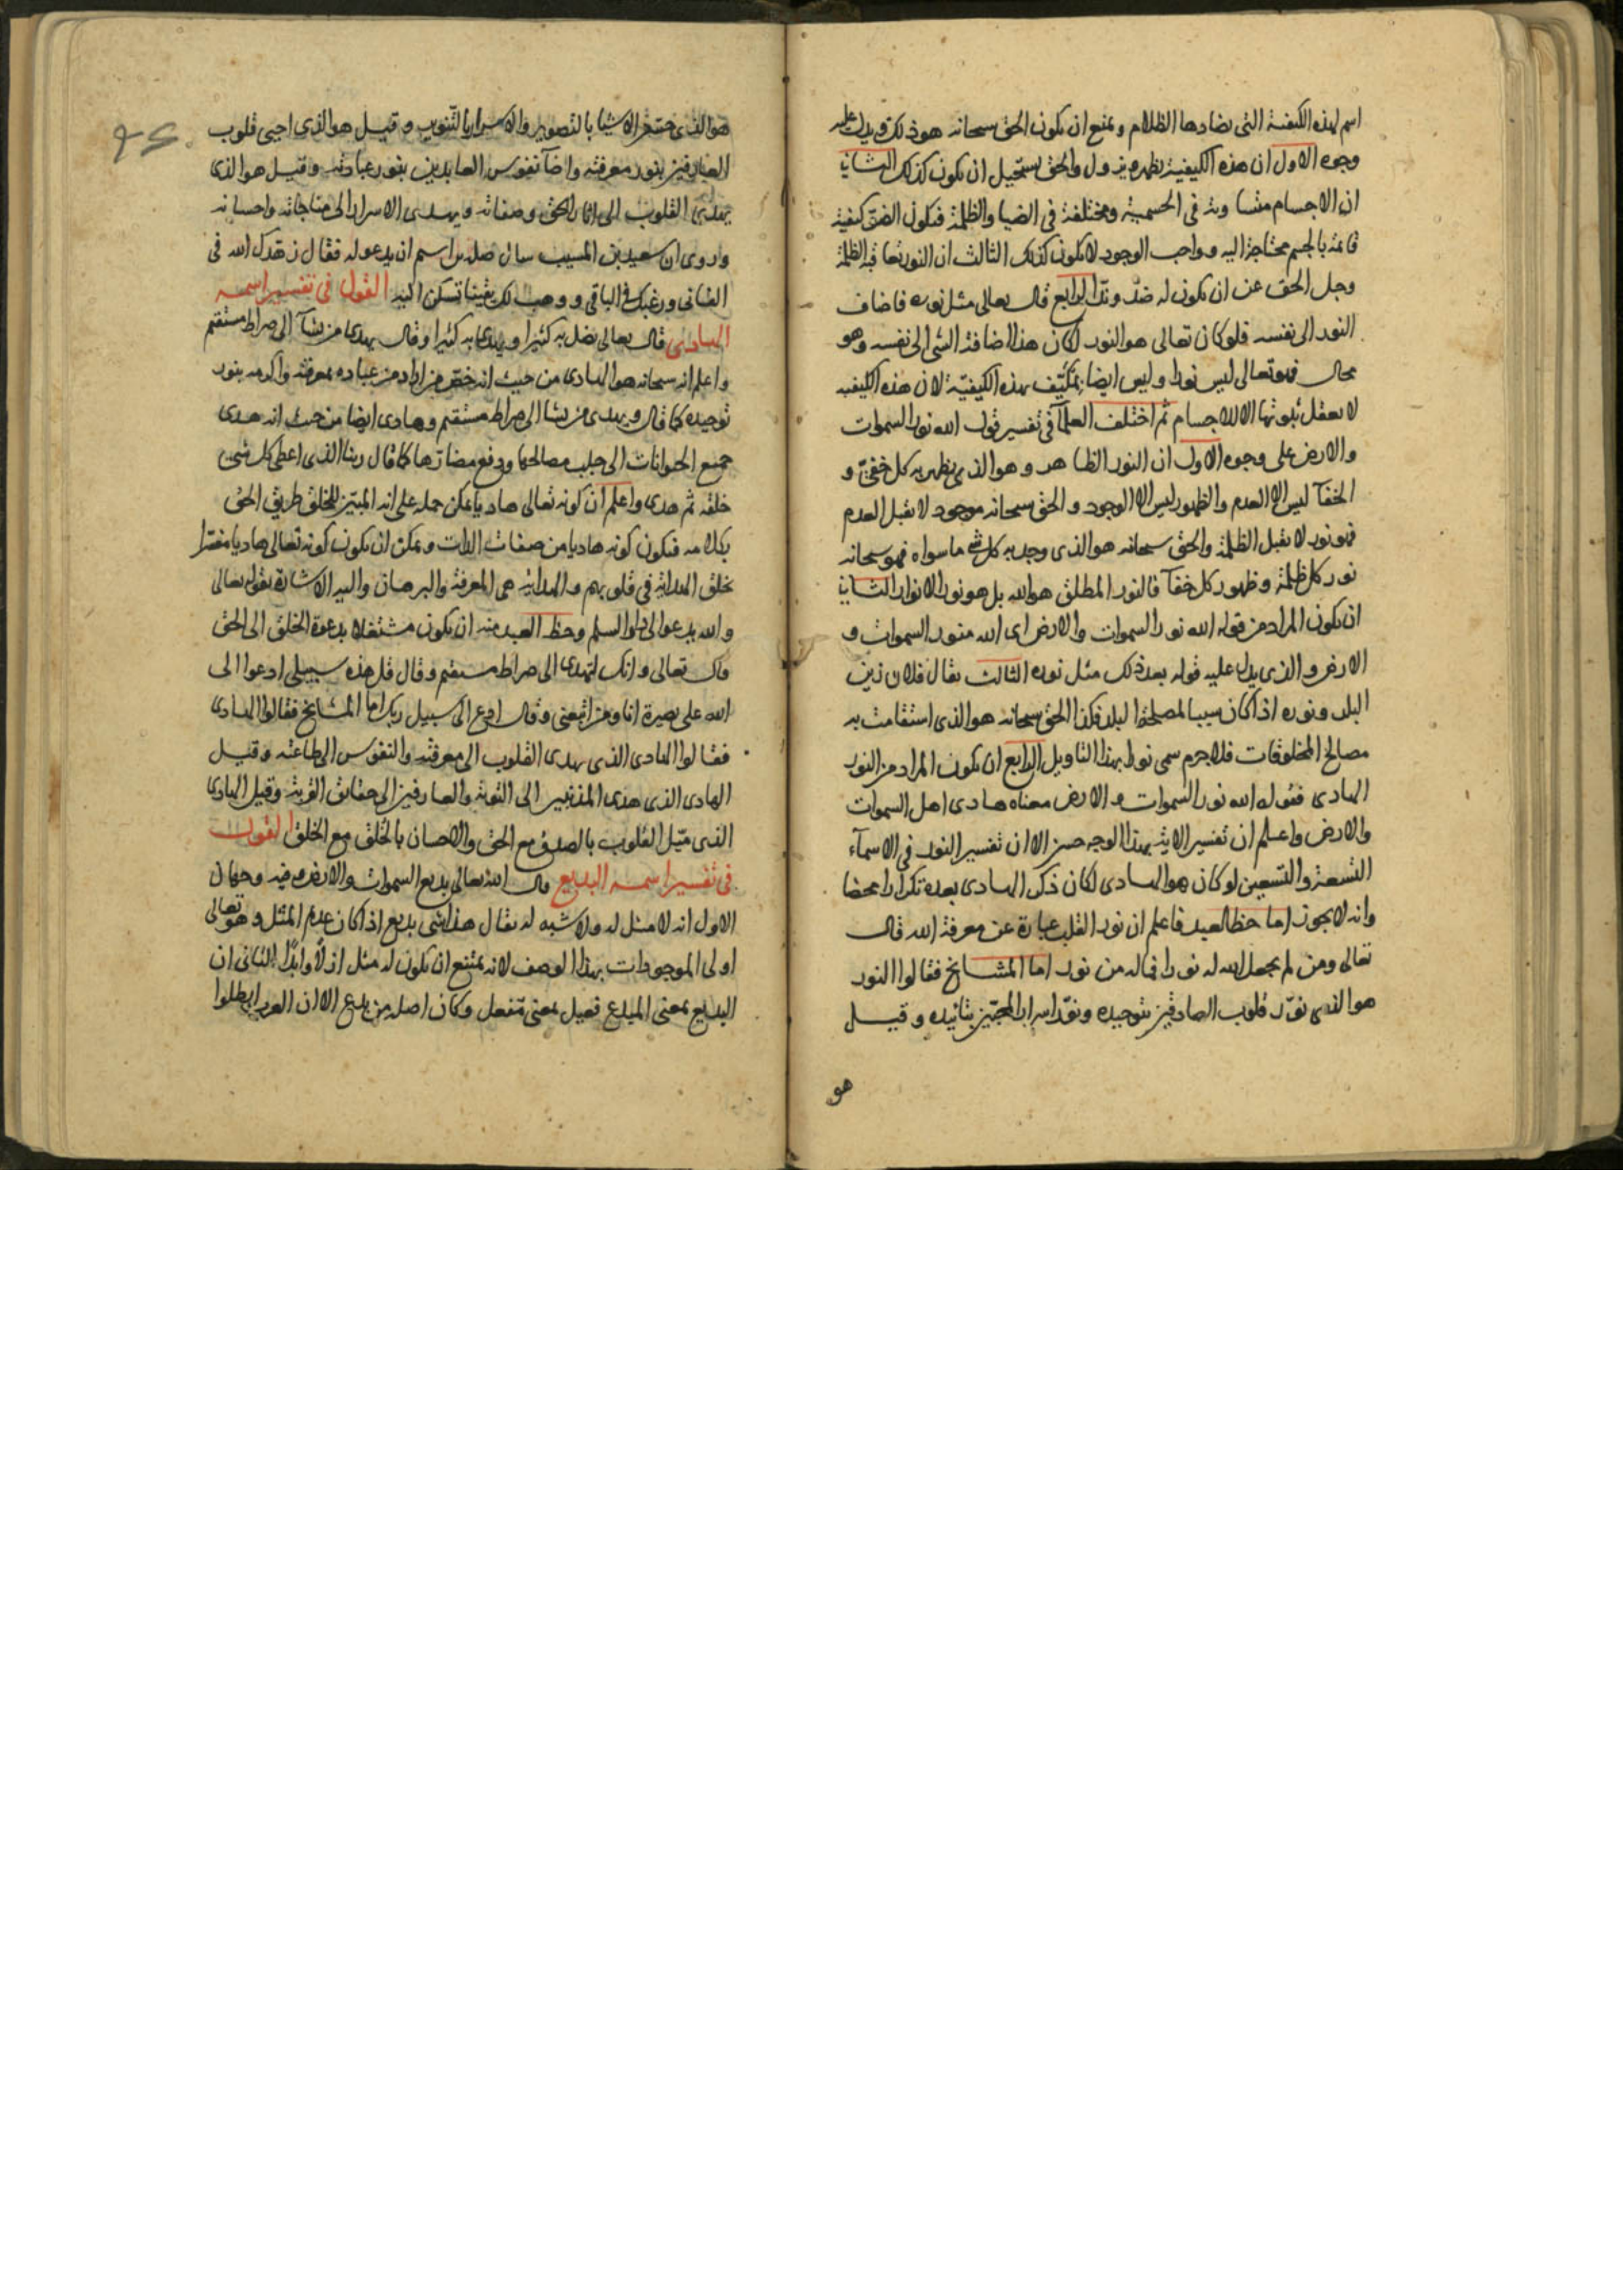 اسم لهذه الكيفية التى يضادها الظلام و يمتنع ان يكون الحق سبحانه هو ذلك ويدل عليه
وجوه الاول ان هذه الكيفية تظهر و تزول والحق يستحيل ان يكون كذلك الثانى
ان الاجسام متساوية فى الجسمية ومختلفة فى الضيا والظلمة فيكون الضوء كيفية
قائمة بالجسم محتاجة اليه و واجب الوجود لا يكون كذلك الثالث ان النور تعاقبه الظلمة
وجل الحق عن ان يكون له ضد وند الرابع قال تعالى مثل نوره فاضاف
النور الى نفسه فلو كان تعالى هو النور لكان هذا اضافة الشى الى نفسه وهو
محال فهو تعالى ليس نورا و ليس ايضا بمتكيف بهذه الكيفية لان هذه الكيفيه
لا يعقل ثبوتها الا للاجسام ثم اختلف العلمآ فى تفسير قوله الله نور السموات
والارض على وجوه الاول ان النور الظاهر و هو الذى يظهر به كل خفى و
الخفآ ليس الا العدم والظهور ليس الا الوجود و الحق سبحانه موجود لا يقبل العدم
فهو نور لا يقبل الظلمة والحق سبحانه هو الذى وجد به كل شى ما سواه فهو سبحانه
نور كل ظلمة و ظهور كل خفآ فالنور المطلق هو الله بل هو نور الانوار الثانى
ان يكون المراد من قوله الله نور السموات والارض اى الله منور السموات و
الارض والذى يدل عليه قوله بعد ذلك مثل نوره الثالث يقال فلان زين
البلد ونوره اذا كان سببا لمصلحة البلد فكذا الحق سبحانه هو الذى استقامت به
مصالح المخلوقات فلا جرم سمى نورا بهذا التاويل الرابع ان يكون المراد من النور
الهادى فقوله الله نور السموات و الارض معناه هادى اهل السموات
والارض واعلم ان تفسير الاية بهذا الوجه حسن الا ان تفسير النور فى الاسمآء
التسعة والتسعين لو كان هو الهادى لكان ذكر الهادى بعده تكرارا محضا
وانه لا يجوز اما حظ العبد فاعلم ان نور القلب عبارة عن معرفة الله قال
تعالى ومن لم يجعل الله له نورا فما له من نور اما المشايخ فقالوا النور
هو الذى نور قلوب الصادقين بتوحيده ونور اسرار المحبين بتأييده و قيل
هو
هو الذى حسن الاشيا بالتصوير والاسرار بالتنوير و قيل هو الذى احيى قلوب
العارفين بنور معرفته واضآ نفوس العابدين بنور عبادته وقيل هو الذى
يهدى القلوب الى اثار الحق وصفاته ويهدى الاسرار الى مناجاته واحسانه
وروى ان سعيد بن المسيب سال صلة بن اسم ان يدعو له فقال زهدك الله فى
الفانى ورغبك فى الباقى و وهب لك يقينا تسكن اليه القول فى تفسير اسمه
الهادى قال تعالى يضل به كثيرا ويهدى به كثيرا وقال يهدى من يشآ الى صراط مستقيم
واعلم انه سبحانه هو الهادى من حيث انه خص من اراد من عباده بمعرفته واكرمه بنور
توحيده كما قال ويهدى من يشا الى صراط مستقيم وهادى ايضا من حيث انه هدى
جميع الحيوانات الى جلب مصالحها ودفع مضارها كما قال ربنا الذى اعطى كل شى
خلقه ثم هدى واعلم ان كونه تعالى هاديا يمكن حمله على انه المبين للخلق طريق الحق
بكلامه فيكون كونه هاديا من صفات الذات ويمكن ان يكون كونه تعالى هاديا مفسرا
بخلق الهداية فى قلوبهم والهداية هى المعرفة والبرهان واليه الاشارة بقوله تعالى
والله يدعو الى دار السلم وحظ العبد منه ان يكون مشتغلا بدعوة الخلق الى الحق
قال تعالى وانك لتهدى الى صراط مستقيم وقال قل هذه سبيلى ادعوا الى
الله على بصيرة انا ومن اتبعنى وقال ادع الى سبيل ربك اما المشايخ فقالوا الهادى
فقالوا الهادى الذى يهدى القلوب الى معرفته والنفوس الى طاعته وقيل
الهادى الذى هدى المذنبين الى التوبة والعارفين الى حقائق القربة وقيل الهادى
الذى ميل القلوب بالصدق مع الحق والاحسان بالخلق مع الخلق القول
فى تفسير اسمه البديع قال الله تعالى بديع السموات والارض وفيه وجهان
الاول انه لا مثل له ولا شبه له يقال هذا شى بديع اذا كان عديم المثل وهو تعالى
اولى الموجودات بهذا الوصف لانه يمتنع ان يكون له مثل ازلا وابدا الثانى ان
البديع بمعنى المبدع فعيل بمعنى مفعل وكان اصله من بدع الا ان العرب ابطلوا